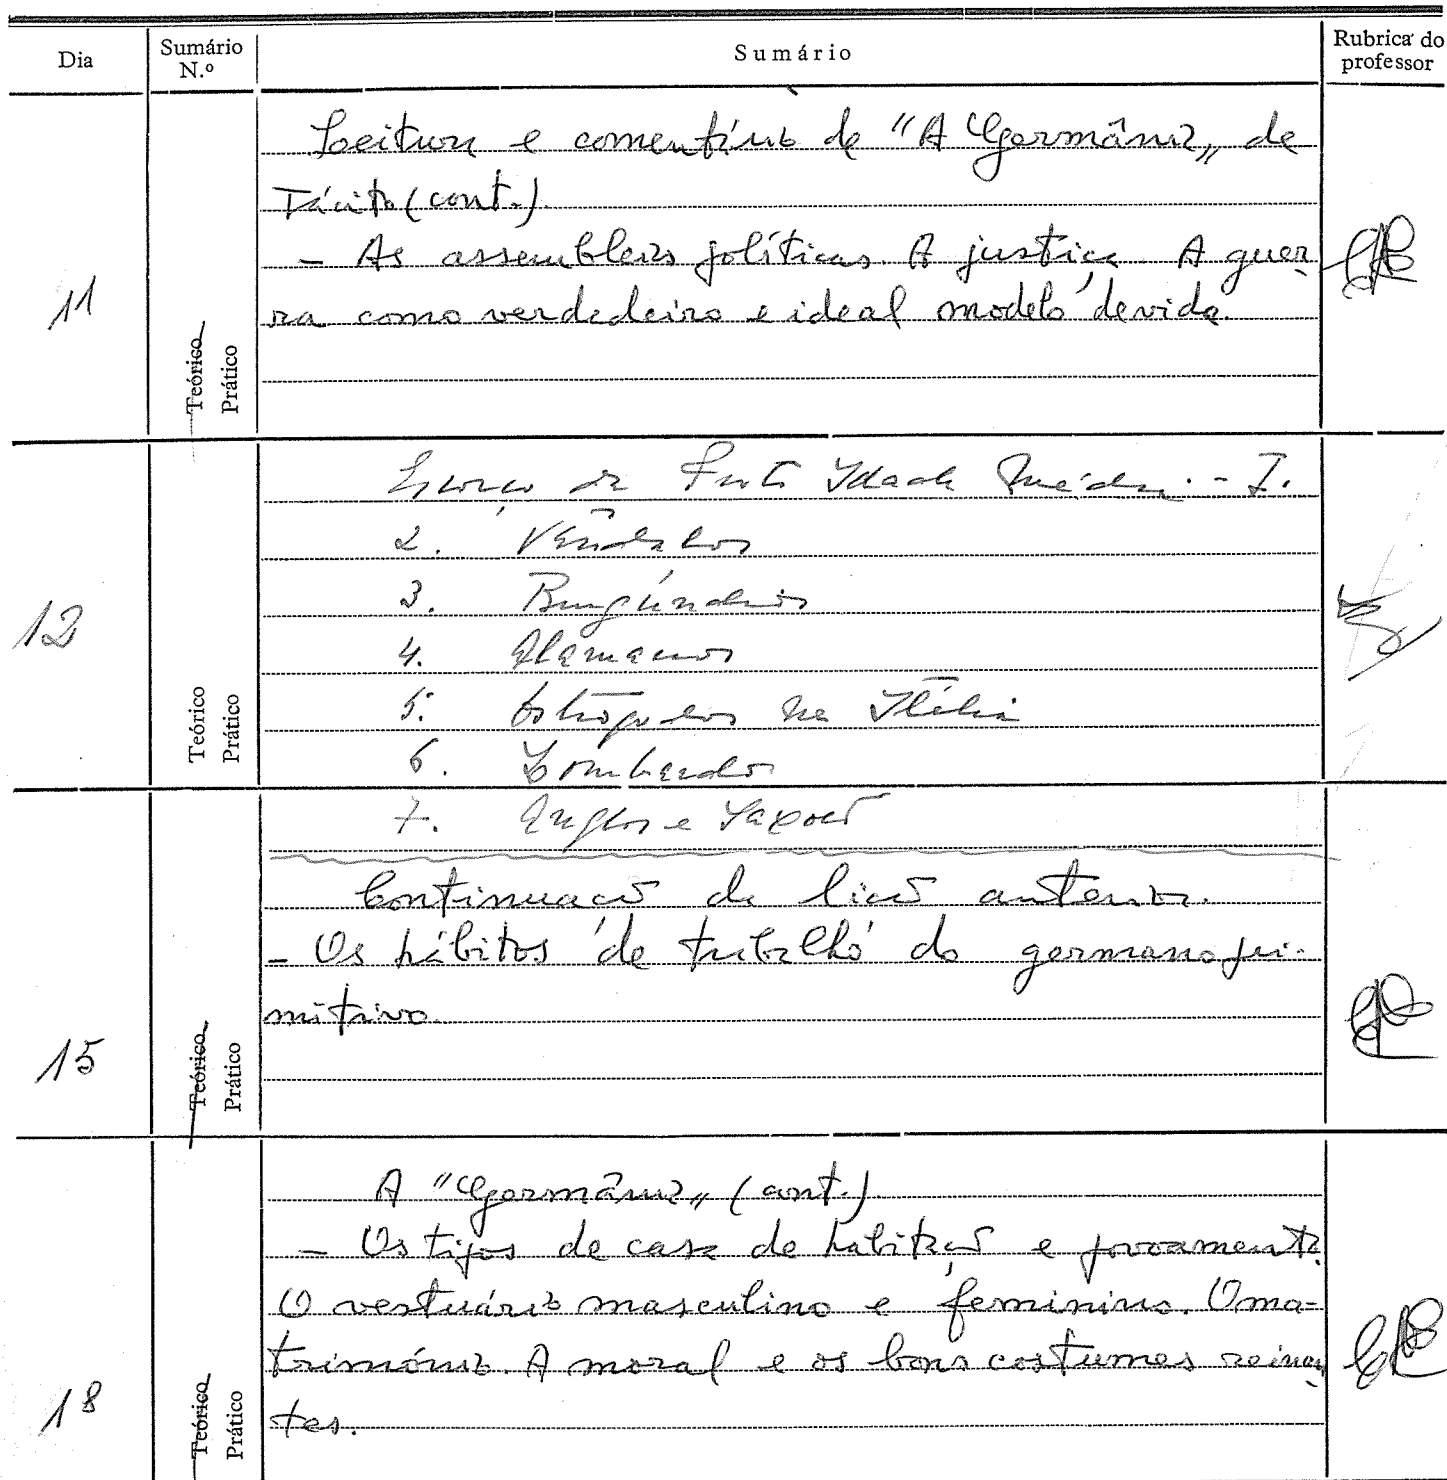 Dia
Sumário
N.º
Sumário
Rubrica do
professor
11
Teórico
Prático
Leitura e comentário de "A Germânia„ de
Tácito (cont.)
– As assembleias políticas. A justiça. A guer-
ra como verdadeiro e ideal modelo de vida.
12
Teórico
Prático
da Idade Média. - I.
2. Vândalos
3. Burgúndios
4. Alamanos
5. Ostrogodos na Itália
6. Lombardos
7. Anglos e Saxões
15
Teórico
Prático
Continuação da lição anterior.
– Os hábitos de trabalho do germano pri-
mitivo.
18
Teórico
Prático
A "Germânia„ (cont.)
– Os tipos de casa de habitação e povoamento.
O vestuário masculino e feminino. O ma-
trimónio. A moral e os bons costumes reinan-
tes.